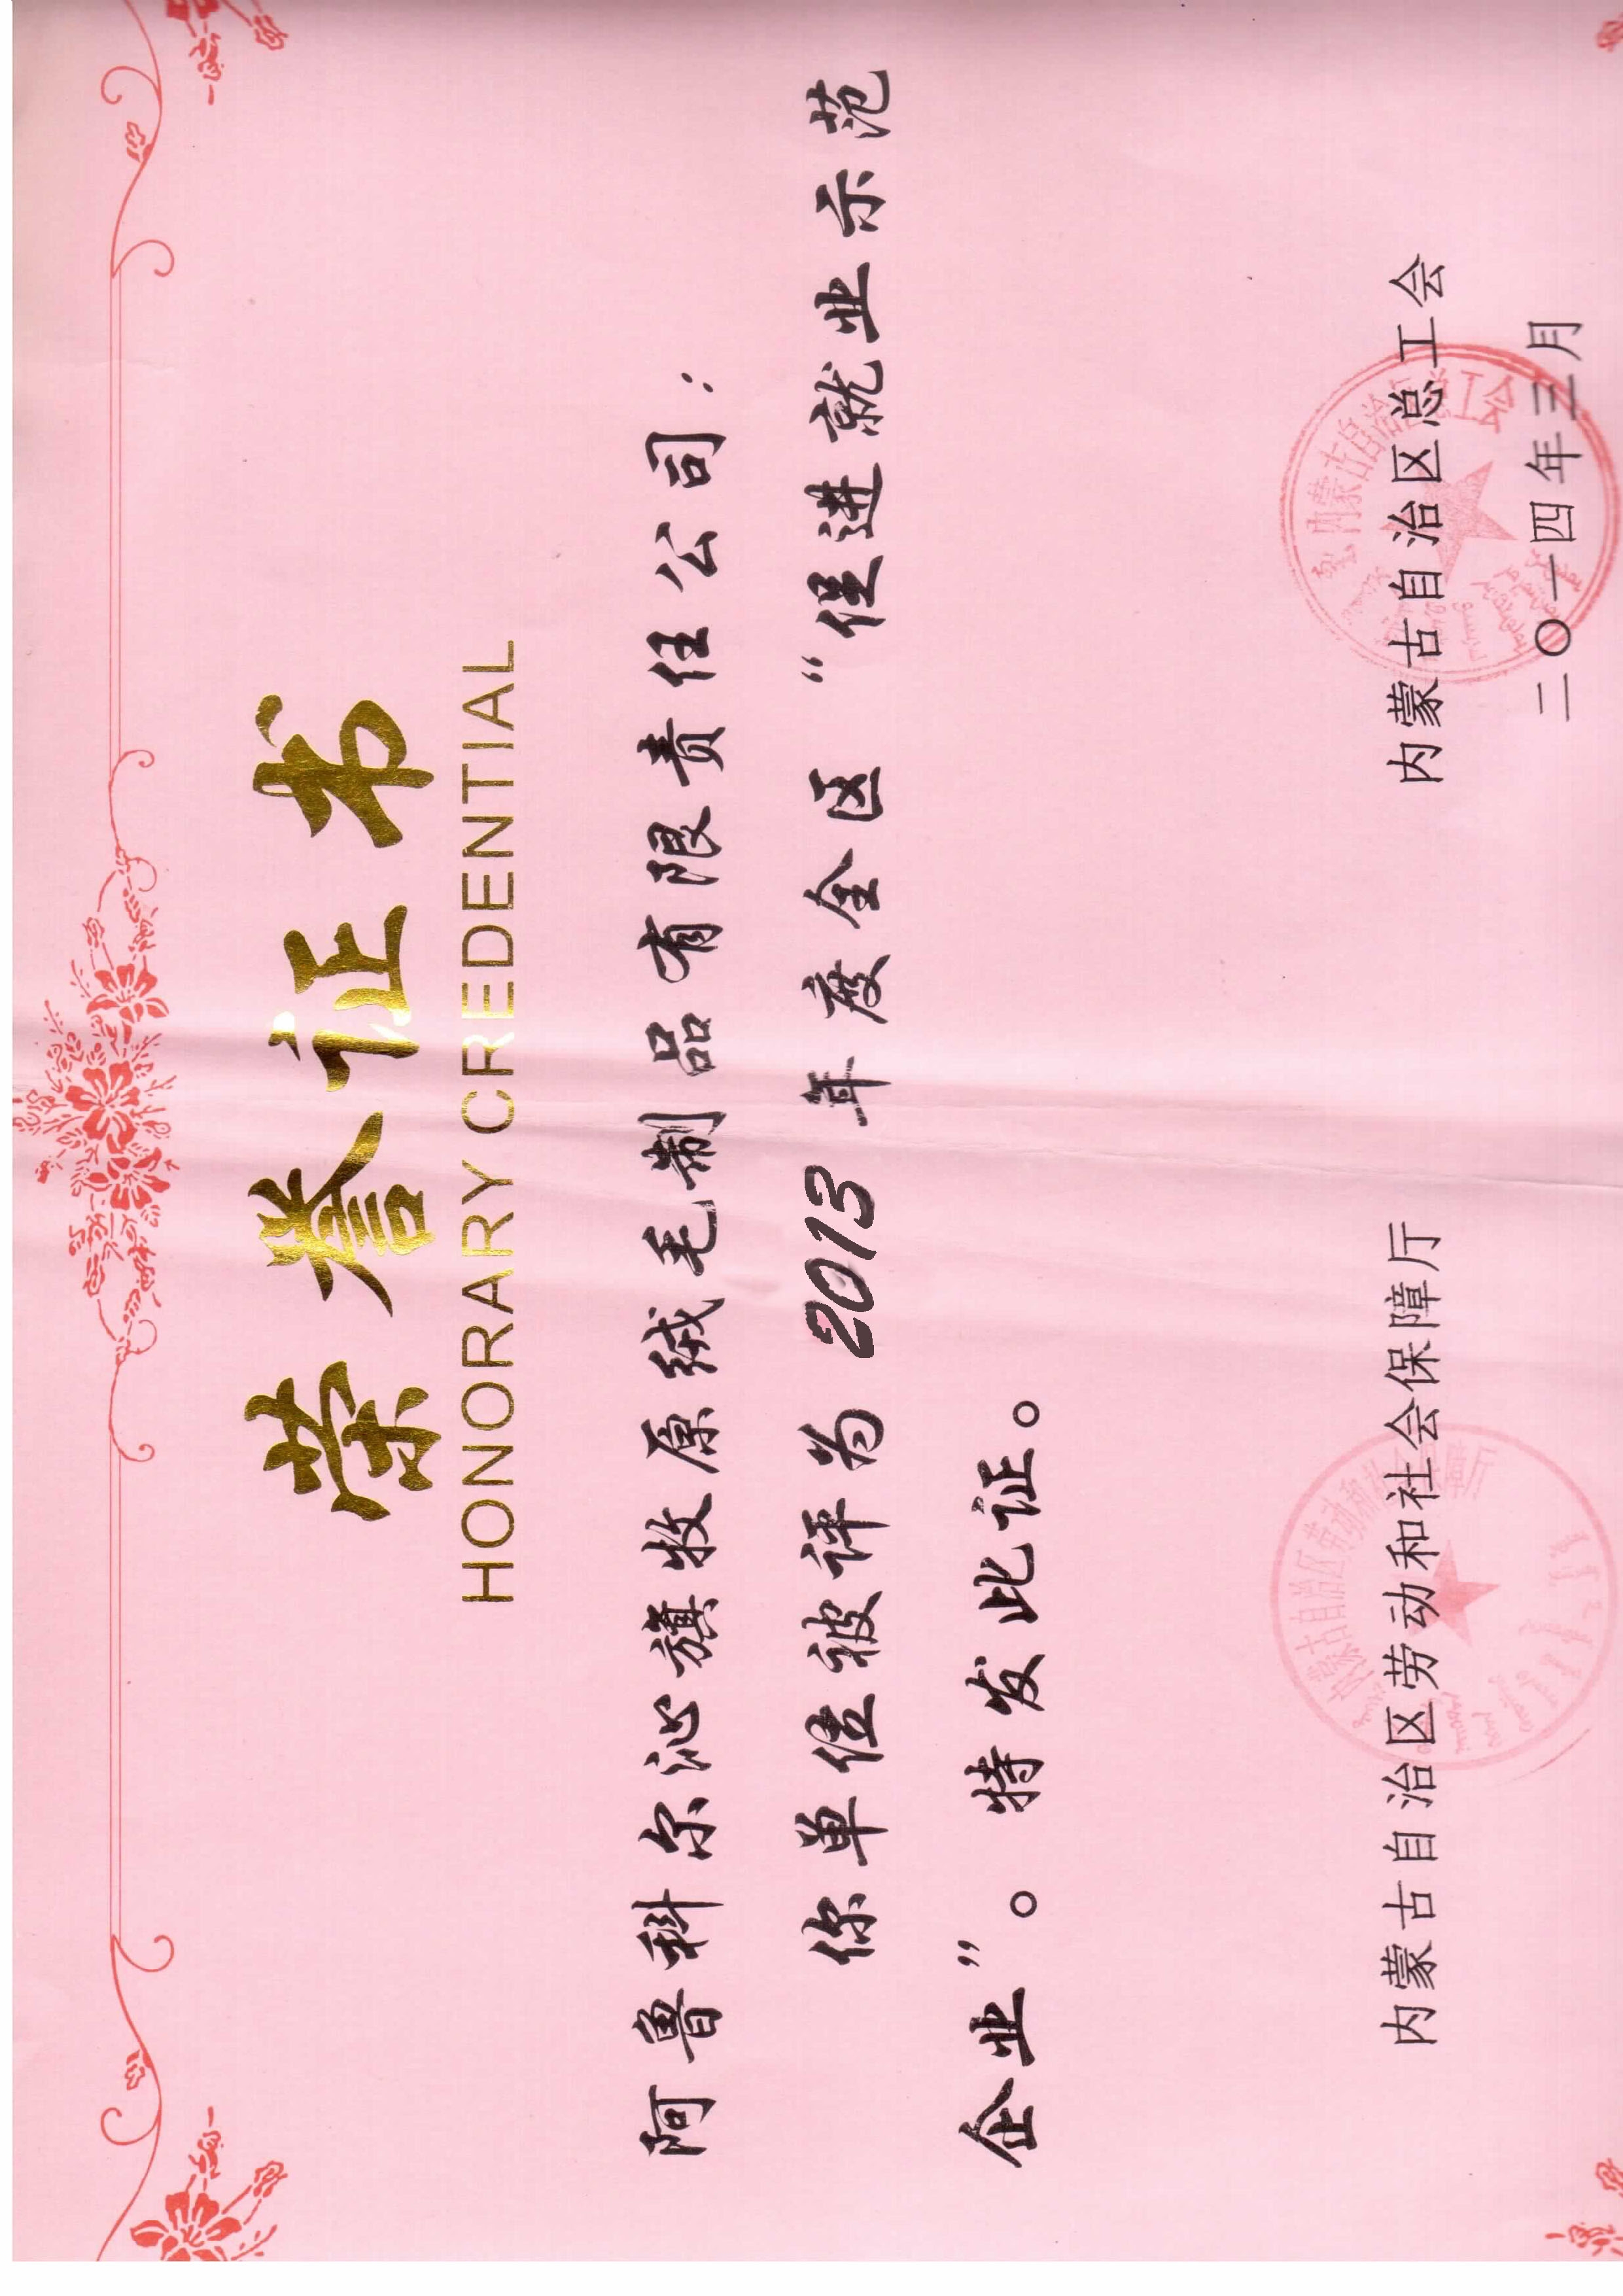 荣誉证书
HONORARY CREDENTIAL
阿鲁科尔沁旗牧原绒毛制品有限责任公司：
你单位被评为 2013 年度全区 “促进就业示范
企业”。特发此证。
内蒙古自治区劳动和社会保障厅 内蒙古自治区总工会
二〇一四年三月
内蒙古自治区总工会